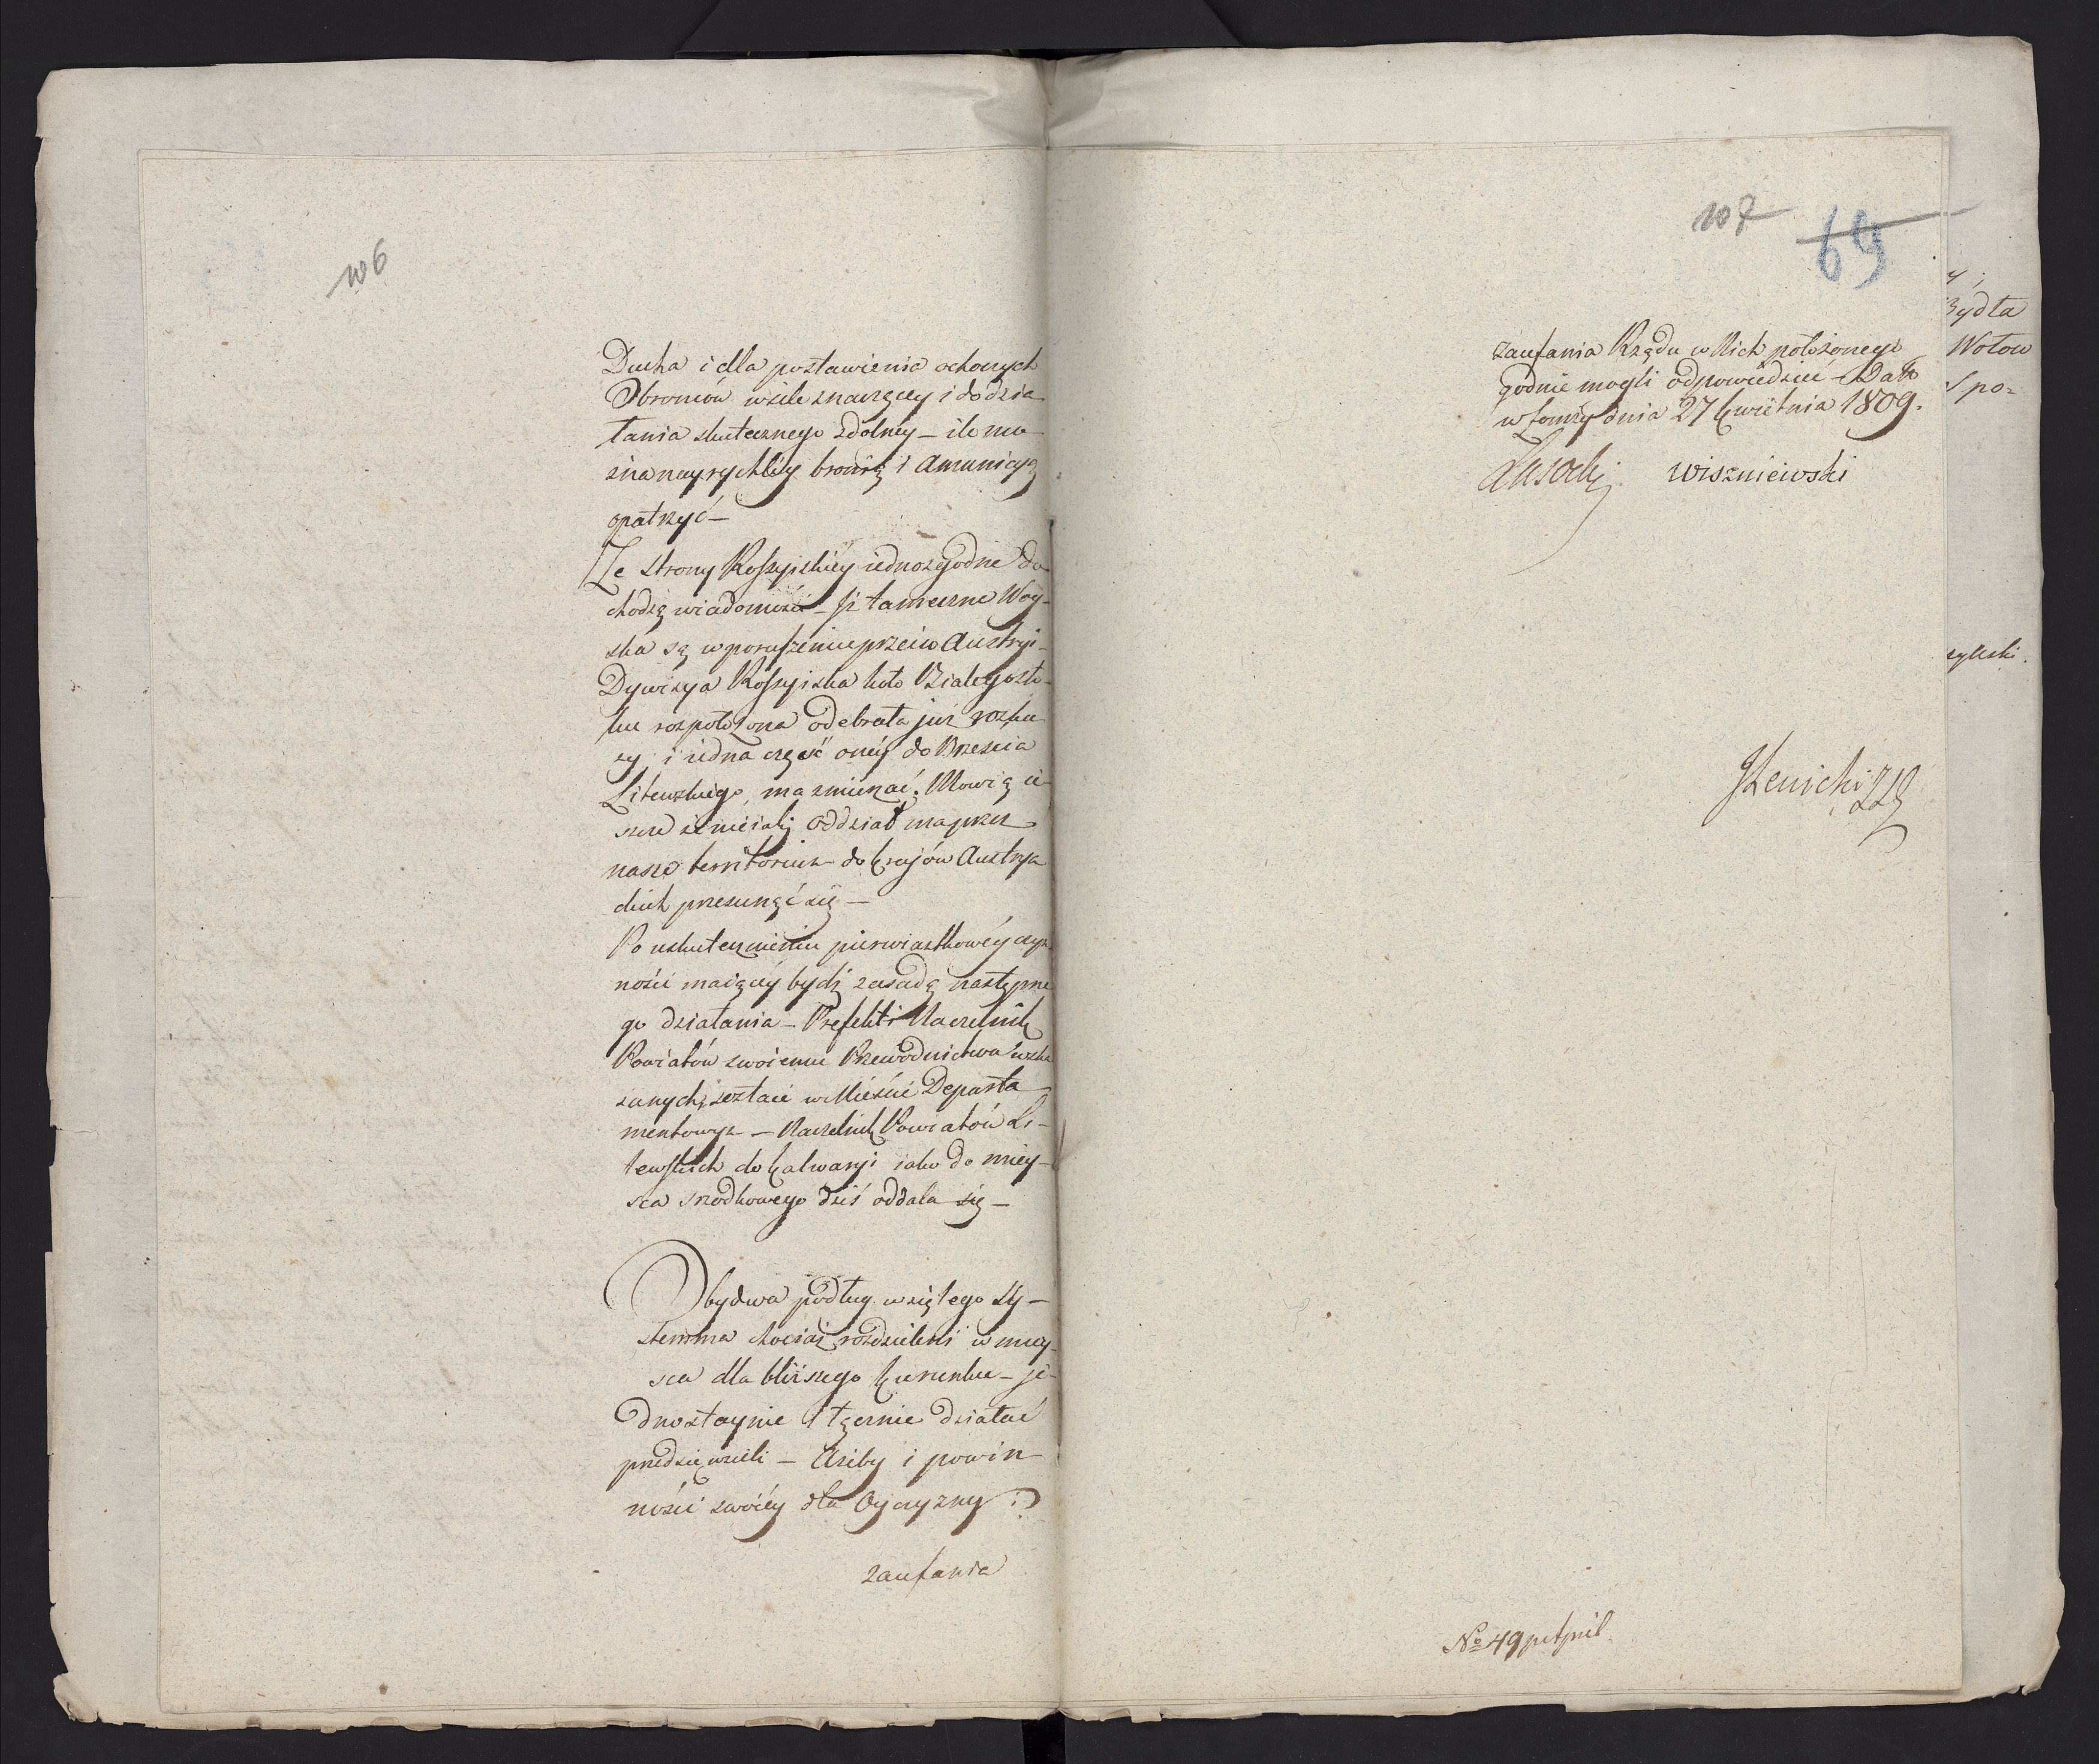 106
Ducha i dla postawienia ochoczych
Obronców w sile znaczącey i do dzia-
łania skutecznego zdolney – ile mo-
żna nayrychléy bronią i Amunicyą
opatrzyć –
Ze strony Rossyiskiey iednozgodnie do-
chodzą wiadomości – Jż tameczne Woy-
ska są w poruszeniu przeciw Austryi –
Dywizya Rossyiska koło Białegosto-
ku rozpołożona odebrała już rozka-
zy, i iedna część onéy do Brześcia
Litewskiego, ma zmierzać. Mowią ie-
szcze że nieiaki oddział ma przez
nasze territorium do krajów Austrya-
ckich przesunąć się –
Po uskutecznieniu pierwiastkowéy czyn-
ności maiącéy bydź zasadą następne-
go działania – Prefekt i Naczelnik
Powiatów swoiemu Przewodnictwu wska-
zanych, zostaie w Mieście Departa-
mentowym – Naczelnik Powiatów Li-
tewskich do Kalwaryi iako do miey-
sca srzodkowego dziś oddala się –
Obydwa podług wziętego sy-
stemma chociaż rozdzieleni w miey-
sca dla bliższego kierunku – je-
dnostaynie i łącznie działać
przedsięwzieli – Ażeby i powin-
ności swoiéy dla Oyczyzny i
zaufania
107
69
zaufania Rządu w Nich położonego
godnie mogli odpowiedzieć – Datt
w Łomży dnia 27 kwietnia 1809.
Lasocki Wiszniewski
No 49
y,
Bydła
Wołow
Spo=